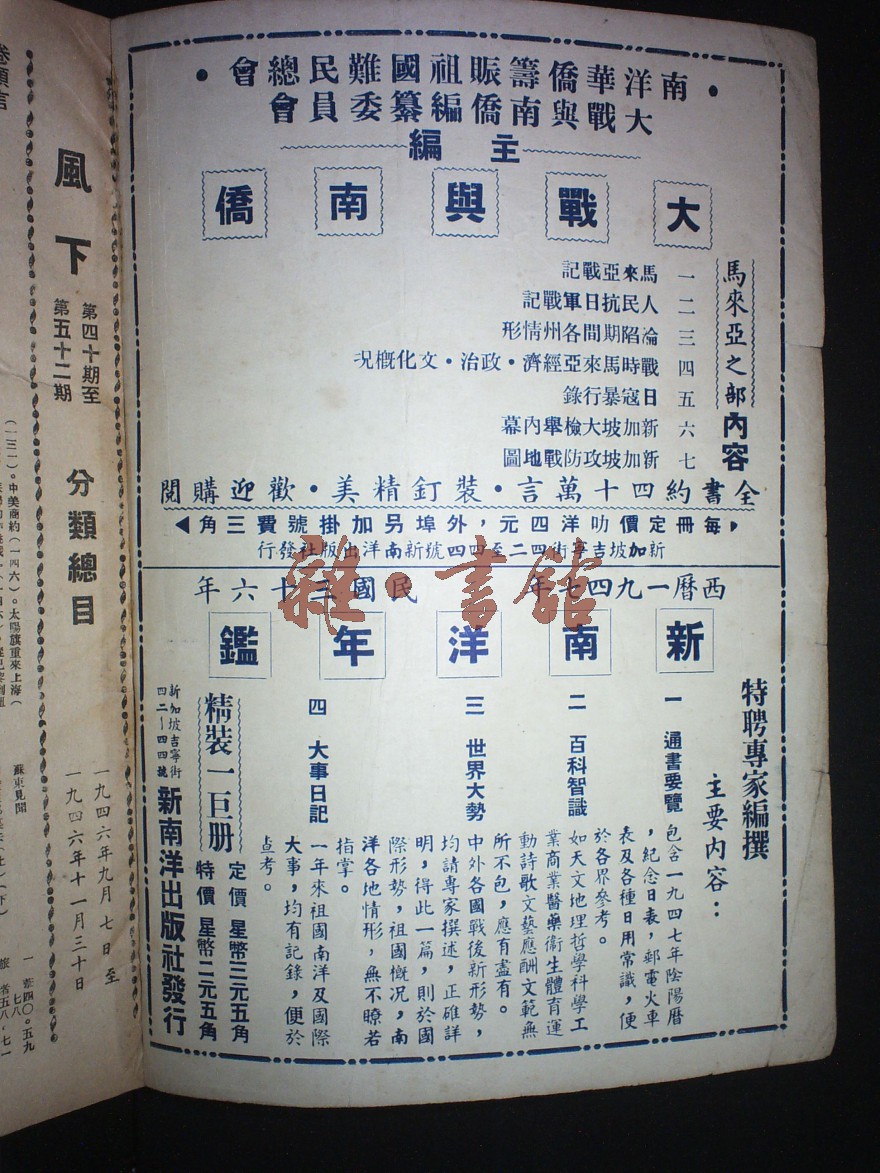 •南洋華僑籌賑祖國難民總會•
大戰與南僑編纂委員會
主編
大戰與南僑
馬來亞之部內容
一 馬來亞戰記
二 人民抗日軍戰記
三 淪陷期間各州情形
四 戰時馬來亞經濟•政治•文化概況
五 日寇暴行錄
六 新加坡大檢舉內幕
七 新加坡攻防戰地圖
全書約四十萬言•裝釘精美•歡迎購閱
每冊定價叻洋四元,外埠另加掛號費三角
新加坡吉寧街四二至四四號新南洋出版社發行
西曆一九四七年 民國三十六年
新南洋年鑑
特聘專家編撰
主要內容:
一 通書要覽
包含一九四七年陰陽曆
,紀念日表,郵電火車
表及各種日用常識,便
於各界參考。
二 百科智識
如天文地理哲學科學工
業商業醫藥衛生體育運
動詩歌文藝應酬文範無
所不包,應有盡有。
三 世界大勢
中外各國戰後新形勢,
均請專家撰述,正確詳
明,得此一篇,則於國
際形勢,祖國慨況,南
洋各地情形,無不瞭若
指掌。
四 大事日記
一年來祖國南洋及國際
大事,均有記錄,便於
查考。
精裝一巨册
定價 星幣三元五角
特價 星幣二元五角
新加坡吉寧街
四二—四四號
新南洋出版社發行
雜•書館
卷頭言
風下
第四十期至
第五十二期
分類總目
一九四六年九月七日至
一九四六年十一月三十日
(一三一)。中美商約(一四六)。太陽旗重來上海(
蘇東見聞